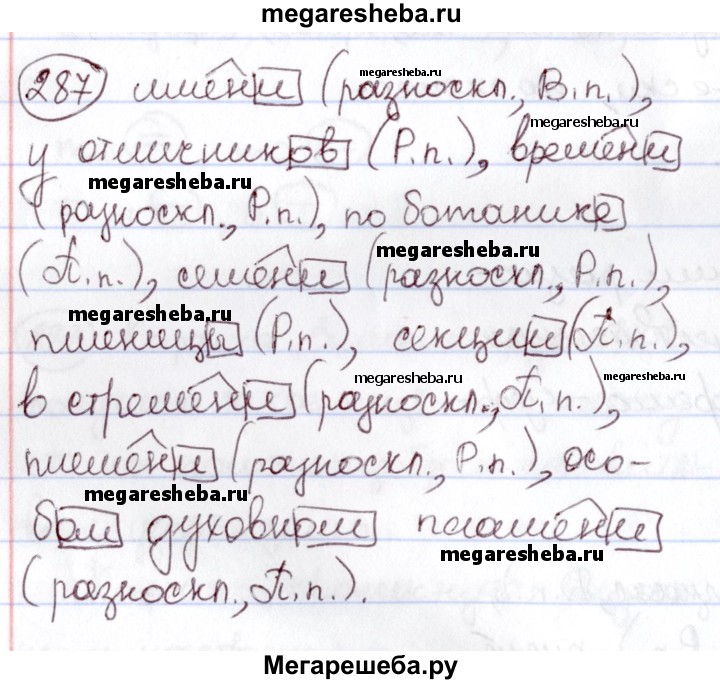 megaresheba.ru
287 имени (разноскл., В.п.),
megaresheba.ru
у отличников (Р.п.), времени
megaresheba.ru
megaresheba.ru
(разноскл., Р.п.), по ботанике
(П.п.), семени (разноскл., Р.п.),
megaresheba.ru
megaresheba.ru
пшеницы (Р.п.), секции (П.п.),
megaresheba.ru
megaresheba.ru
megaresheba.ru
в стремени (разноскл., П.п.),
племени (разноскл., Р.п.), осо-
megaresheba.ru
бом духовном пламени
megaresheba.ru
(разноскл., П.п.).
Мегарешеба.ру